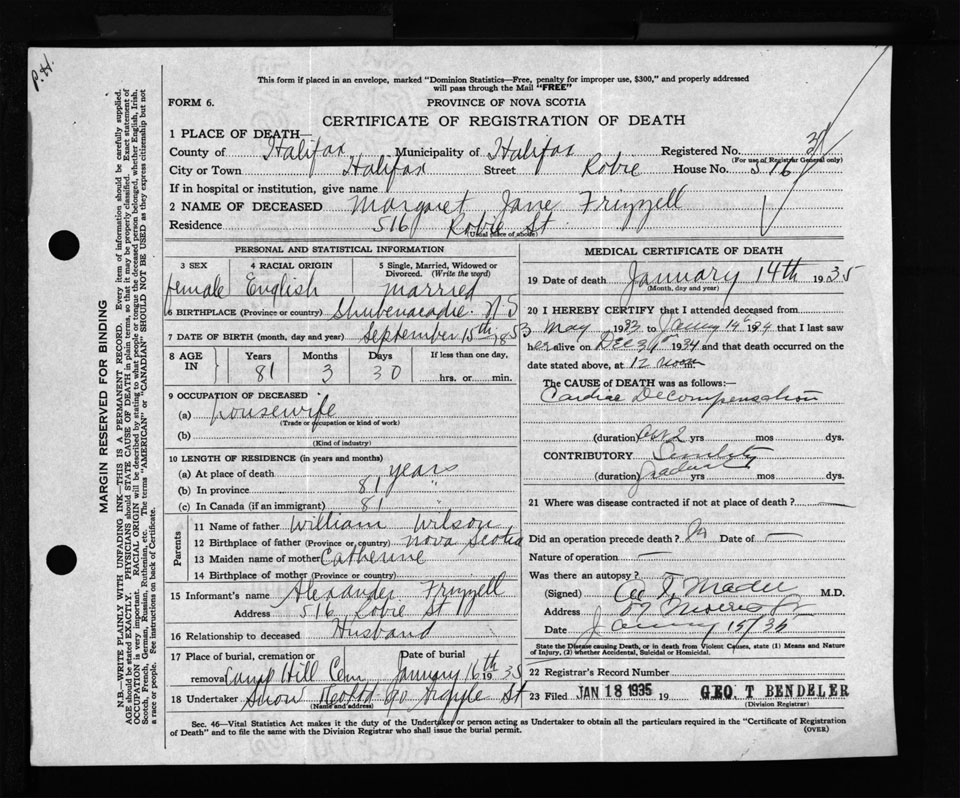 P.H.
This form if placed in an envelope, marked "Dominion Statistics—Free, penalty for improper use, $300," and properly addressed
will pass through the Mail "FREE"
FORM 6.
PROVINCE OF NOVA SCOTIA
CERTIFICATE OF REGISTRATION OF DEATH
1 PLACE OF DEATH—
County of Halifax Municipality of Halifax Registered No.
(For use of Registrar General only)
City or Town Halifax Street Robie House No. 516
If in hospital or institution, give name
2 NAME OF DECEASED Margaret Jane Frizzell
Residence 516 Robie St
(Usual place of abode)
PERSONAL AND STATISTICAL INFORMATION
3 SEX female
4 RACIAL ORIGIN English
5 Single, Married, Widowed or Divorced. (Write the word) married
6 BIRTHPLACE (Province or Country) Shubenacadie. N S
7 DATE OF BIRTH (month, day and year) September 15th 1853
8 AGE IN Years Months Days If less than one day,
81 3 30 hrs. or min.
9 OCCUPATION OF DECEASED
(a) housewife
(Trade or occupation or kind of work)
(b)
(Kind of industry)
10 LENGTH OF RESIDENCE (in years and months)
(a) At place of death years
(b) In province 81 "
(c) In Canada (if an immigrant) 81 "
Parents
11 Name of father William Wilson
12 Birthplace of father (Province or country) Nova Scotia
13 Maiden name of mother Catherine
14 Birthplace of mother (Province or country)
15 Informant's name Alexander Frizzell
Address 516 Robie St
16 Relationship to deceased Husband
17 Place of burial, cremation or removal Camp Hill Cem Date of burial January 16th 1935
18 Undertaker Snow 90 Argyle St
(Name and address)
MEDICAL CERTIFICATE OF DEATH
19 Date of death January 14th 1935
(Month, day and year)
20 I HEREBY CERTIFY that I attended deceased from
May 1933 to 1934 that I last saw
her alive on Dec 1934 and that death occurred on the
date stated above, at 12 noon
The CAUSE of DEATH was as follows:—
Cardiac Decompensation
(duration) 2 yrs mos dys.
CONTRIBUTORY Senility
(duration) yrs mos dys.
21 Where was disease contracted if not at place of death? —
Did an operation precede death? Date of —
Nature of operation —
Was there an autopsy?
(Signed) M.D.
Address
Date January 15/35
State the Disease causing Death, or in death from Violent Causes, state (1) Means and Nature of Injury, (2) whether Accidental, Suicidal or Homicidal.
22 Registrar's Record Number
23 Filed JAN 18 1935 19 GEO. T BENDELER
(Division Registrar)
Sec. 46—Vital Statistics Act makes it the duty of the Undertaker or person acting as Undertaker to obtain all the particulars required in the "Certificate of Registration
of Death" and to file the same with the Division Registrar who shall issue the burial permit.
(OVER)
MARGIN RESERVED FOR BINDING
N.B.—WRITE PLAINLY WITH UNFADING INK—THIS IS A PERMANENT RECORD. Every item of information should be carefully supplied.
AGE should be stated EXACTLY. PHYSICIANS should STATE CAUSE OF DEATH in plain terms, so that it may be properly classified. Exact statement of
OCCUPATION is very important. RACIAL ORIGIN will be described by stating to what people or tongue the deceased person belonged, whether English, Irish,
Scotch, French, German, Russian, Ruthenian, etc. The terms "AMERICAN" or "CANADIAN" SHOULD NOT BE USED as they express citizenship but not
a race or people. See instructions on back of Certificate.